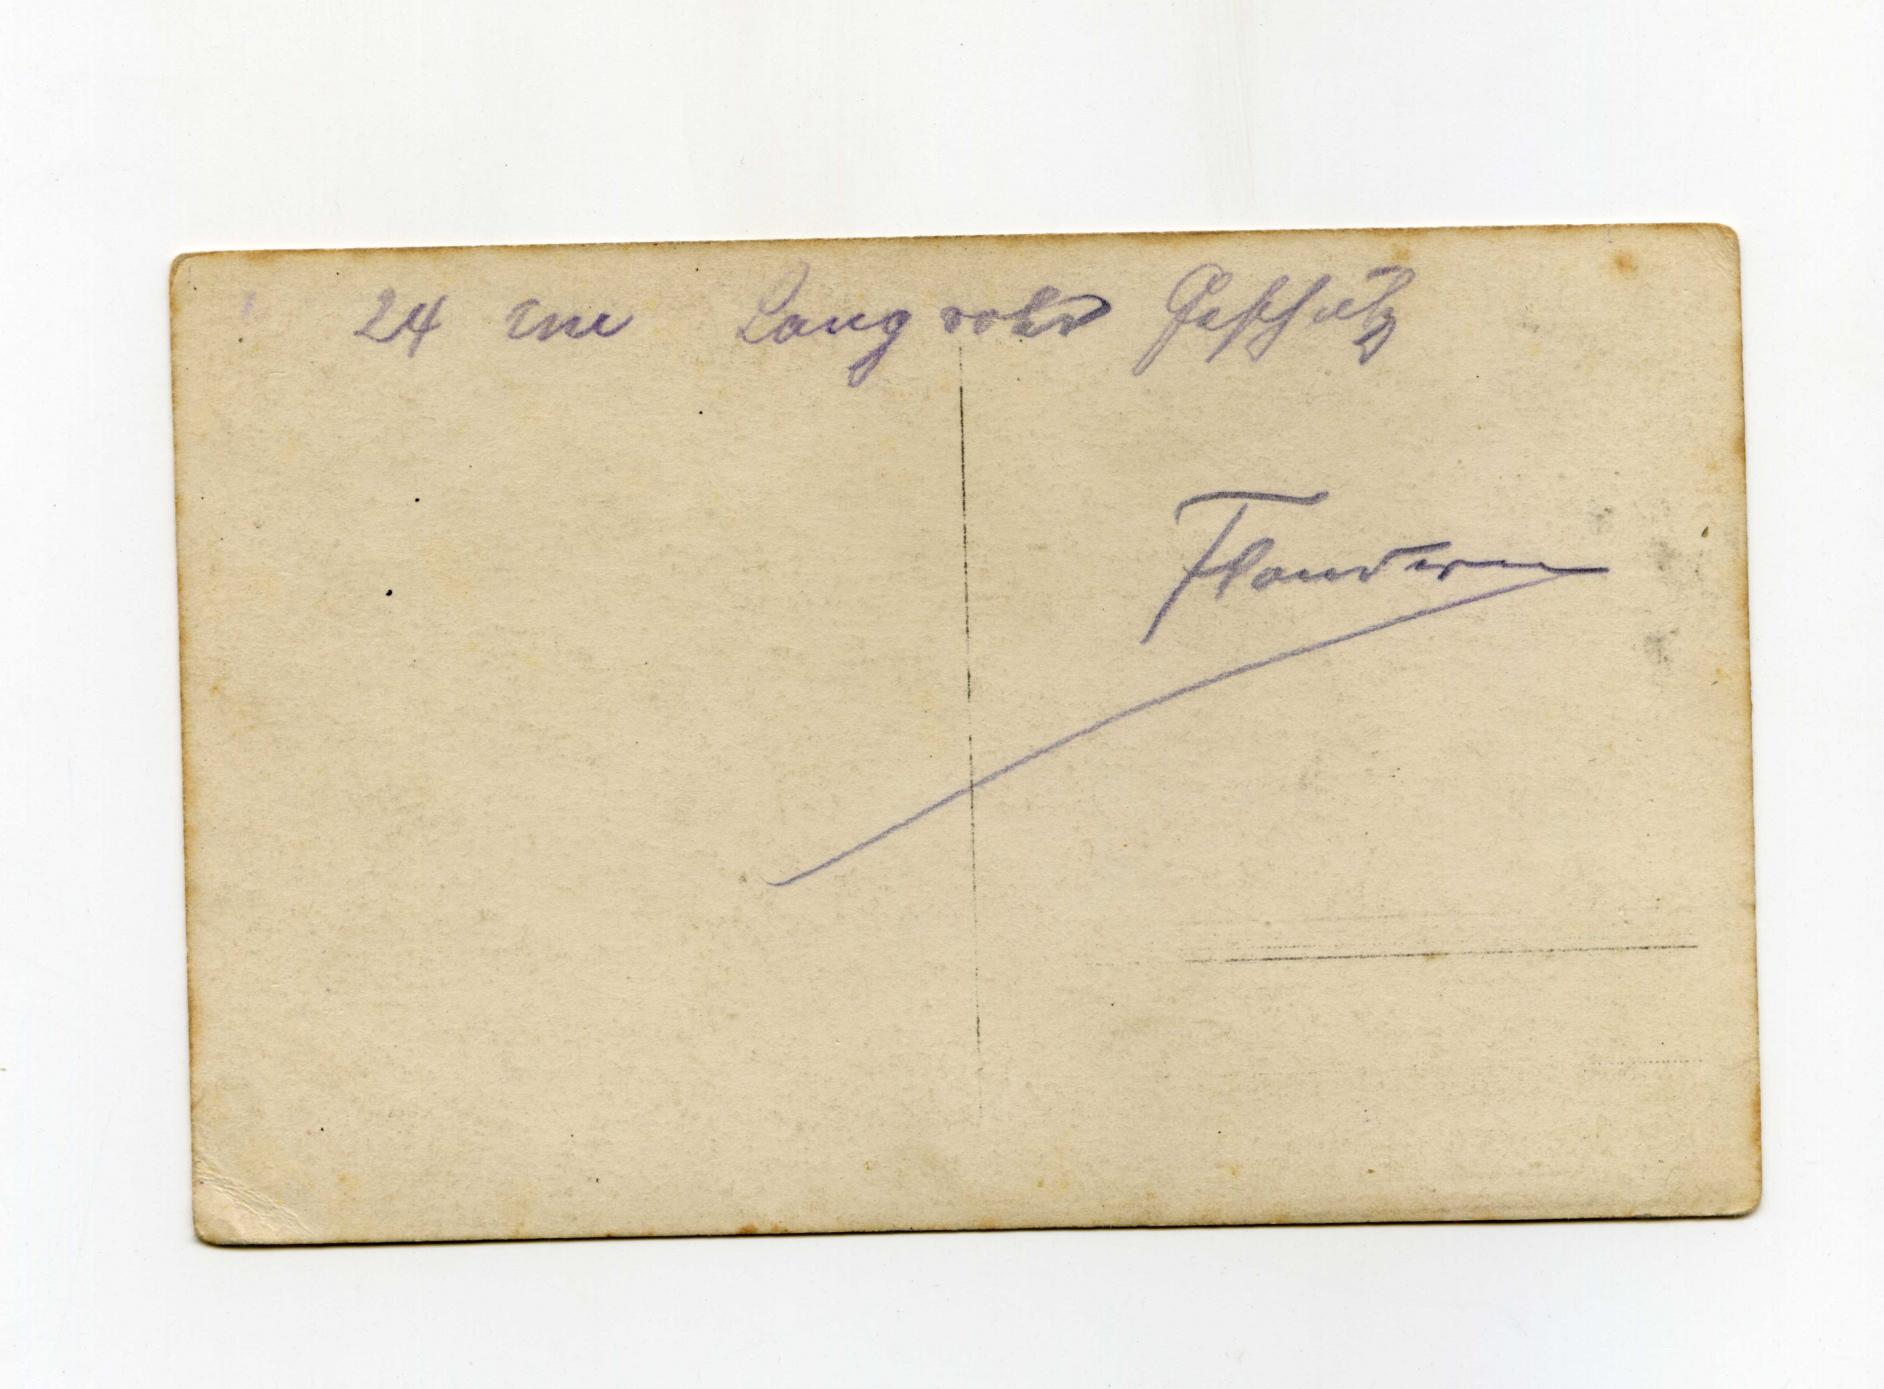 24 cm Langrohr Geschütz
Flandern